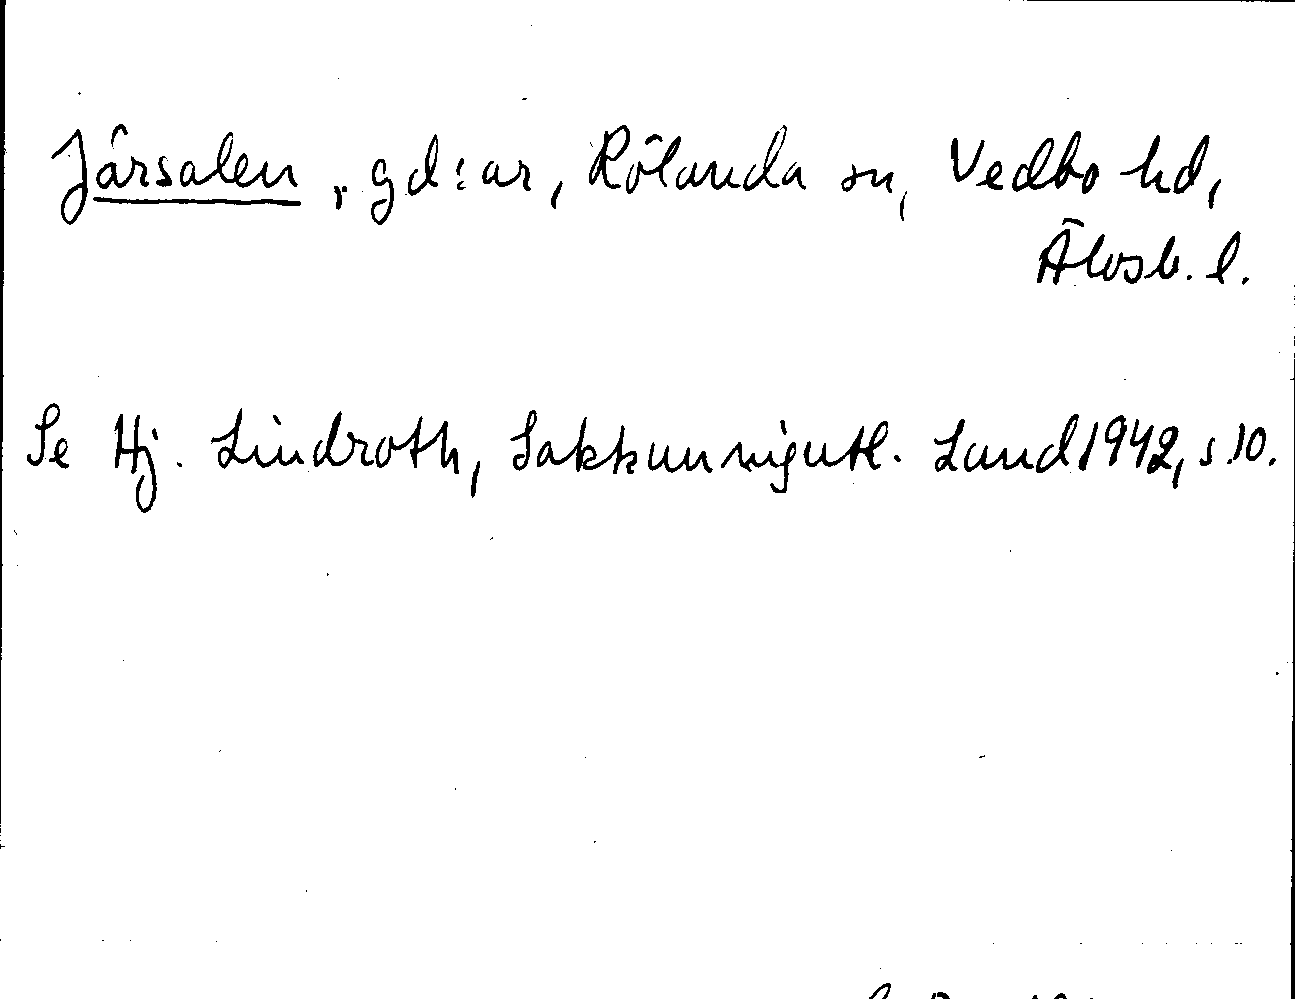 Järsalen, gd:ar, Rölanda sn, Vedbo hd,
Älvsb. l.
Se Hj. Lindroth, Sakkunnigutl. Lund 1942, s 10.